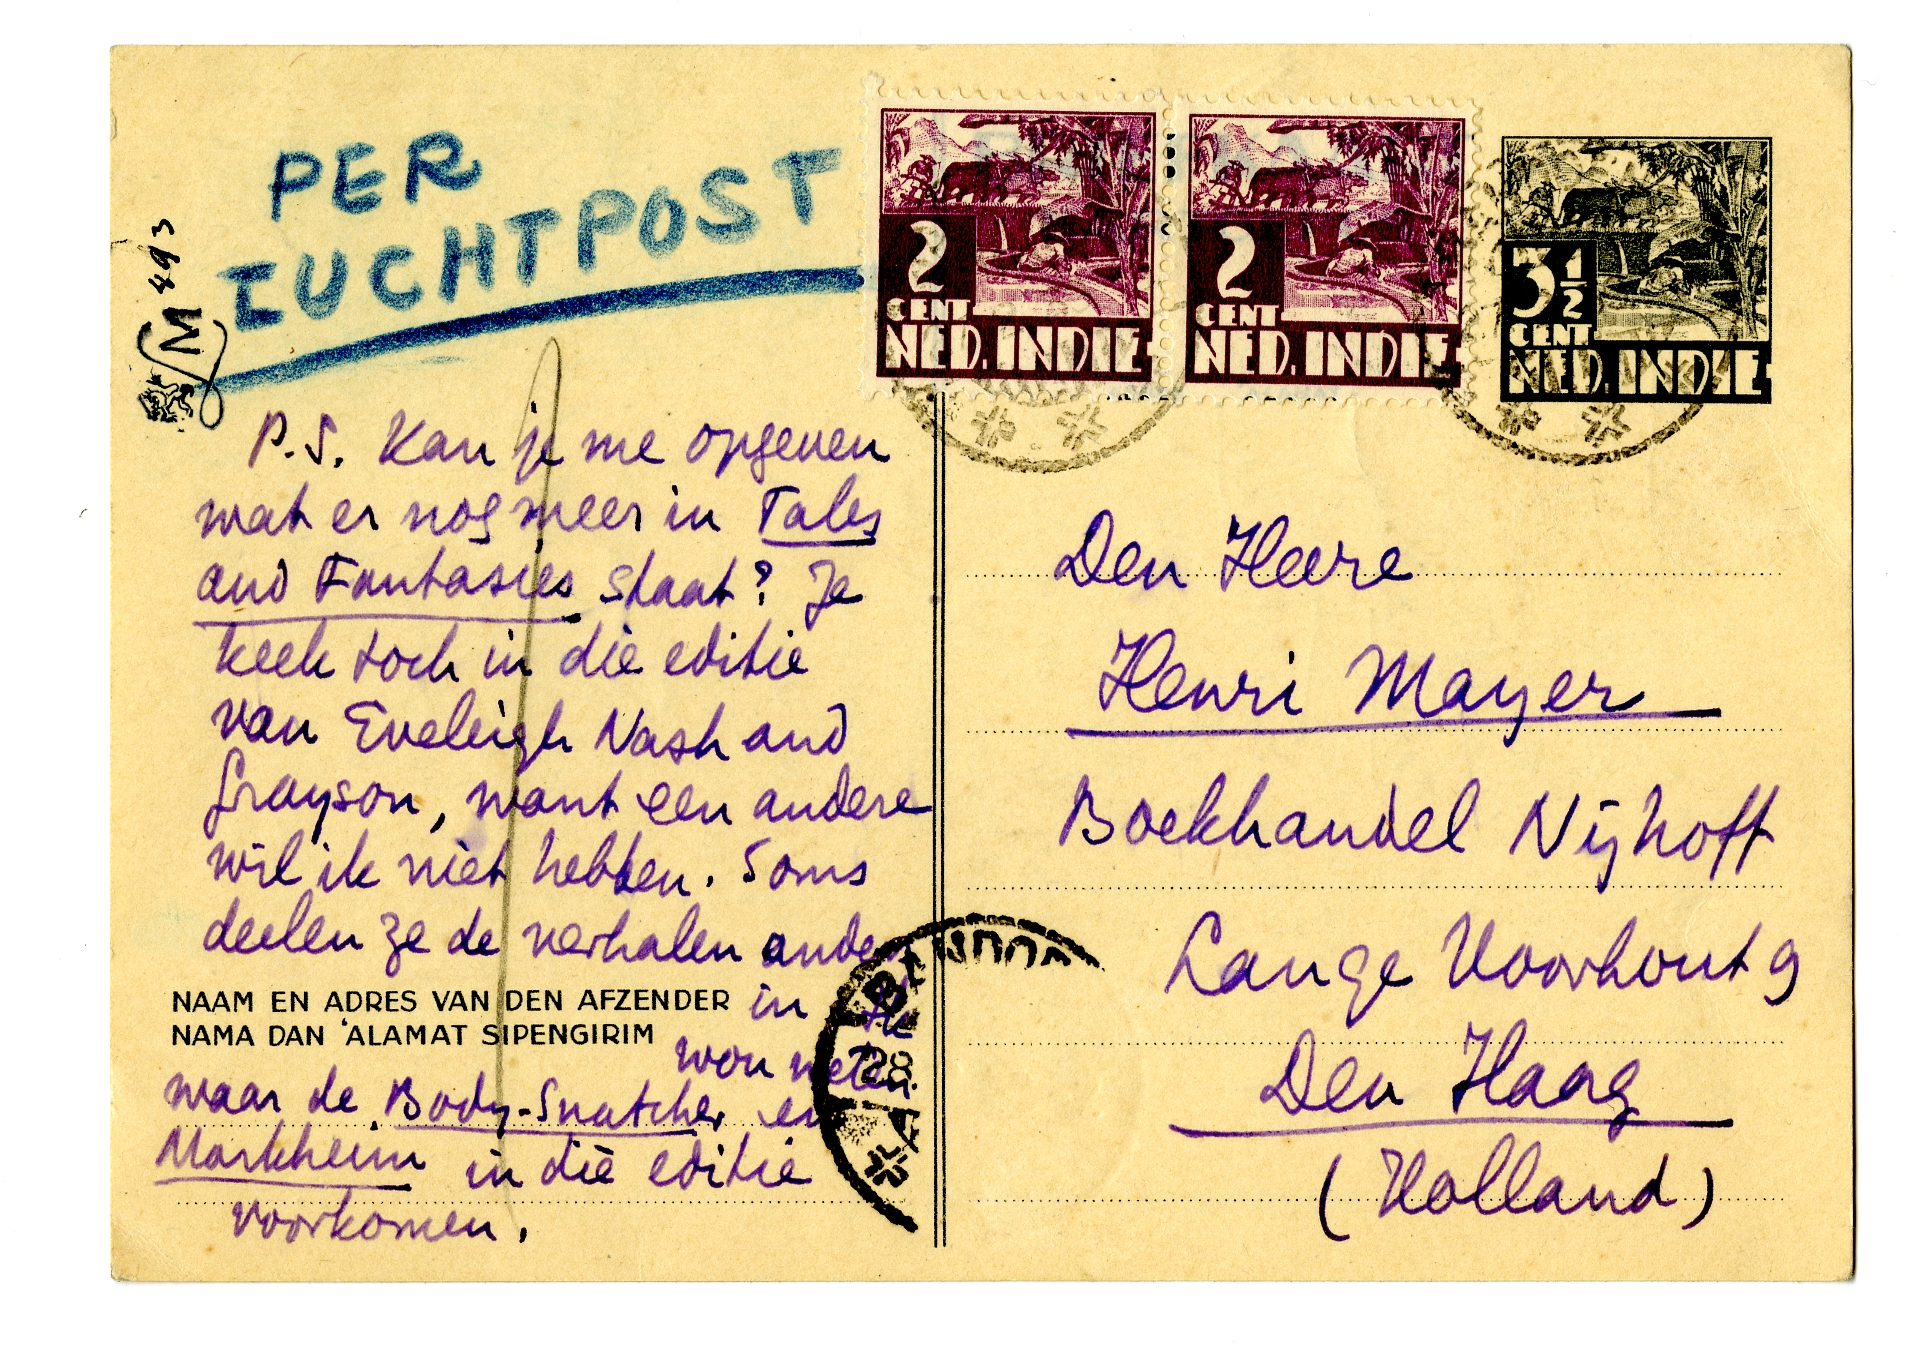 PER
LUCHTPOST
M 493
2
CENT
NED. INDIE
2
CENT
NED. INDIE
3 1/2
CENT
NED. INDIE
P.S. Kan je me opgeven
wat er nog meer in Tales
and Fantasies staat? Je
keek toch in die editie
van Eveleigh Nash and
Grayson, want een andere
wil ik niet hebben. Soms
deelen ze de verhalen anders
in. Ik
wou weten
waar de Body-Snatcher en
Markheim in die editie
voorkomen.
NAAM EN ADRES VAN DEN AFZENDER
NAMA DAN 'ALAMAT SIPENGIRIM
Den Heere
Henri Mayer
Boekhandel Nijhoff
Lange Voorhout 9
Den Haag
(Holland)
28